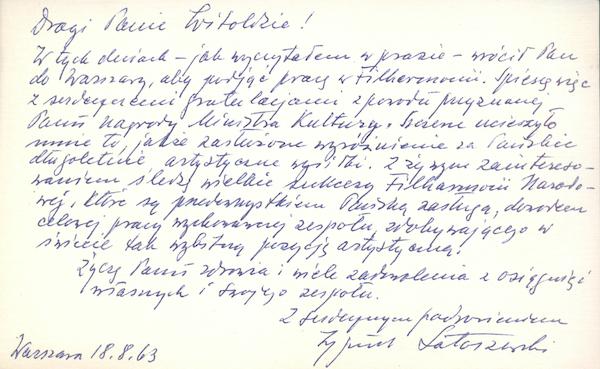 Drogi Panie Witoldzie!
W tych dniach – jak wyczytałem w prasie – wrócił Pan
do Warszawy, aby podjąć pracę w Filharmonii. Spieszę więc
z serdecznemi gratulacjami z powodu przyznanej
Panu nagrody Ministra Kultury. Szczerze ucieszyło
mnie to, jakże zasłużone wyróżnienie za Pańskie
długoletnie artystyczne wysiłki. Z żywym zaintereso-
waniem śledzę wielkie sukcesy Filharmonii Narodo-
wej, które są przedewszystkiem Pańską zasługą, dowodem
celowej pracy wychowawczej zespołu, zdobywającego w
świecie tak wybitną pozycję artystyczną.
Życzę Panu zdrowia i wiele zadowolenia z osiągnięć
własnych i swojego zespołu.
Z serdecznym pozdrowieniem
Zygmunt Latoszewski
Warszawa 18.8.63